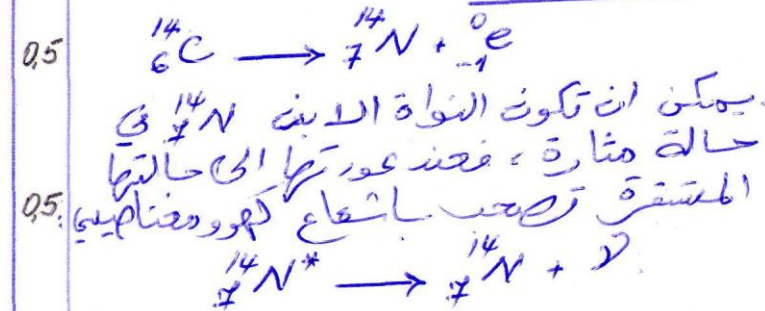 0,5 ¹⁴₆C ⟶ ¹⁴₇N + ⁰₋₁e
يمكن ان تكون النواة الابن ¹⁴₇N في
حالة مثارة، فعند عودتها الى حالتها
0,5 المستقرة تصحب باشعاع كهرومغناطيسي:
¹⁴₇N* ⟶ ¹⁴₇N + γ